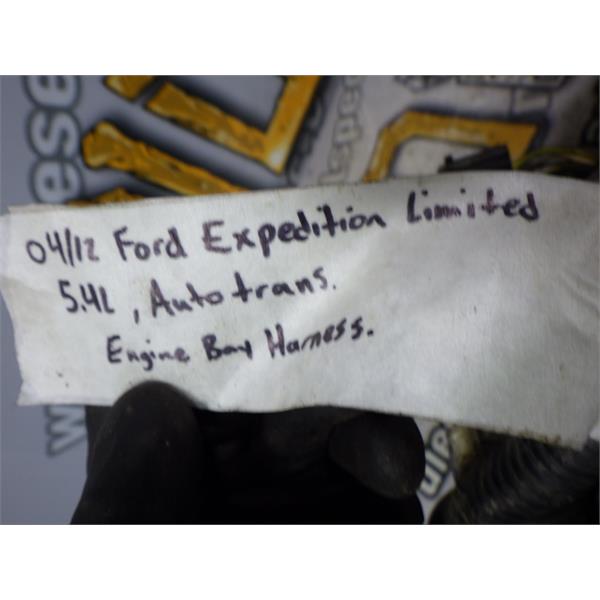 04/12 Ford Expedition Limited
5.4L, Auto trans.
Engine Bay Harness.